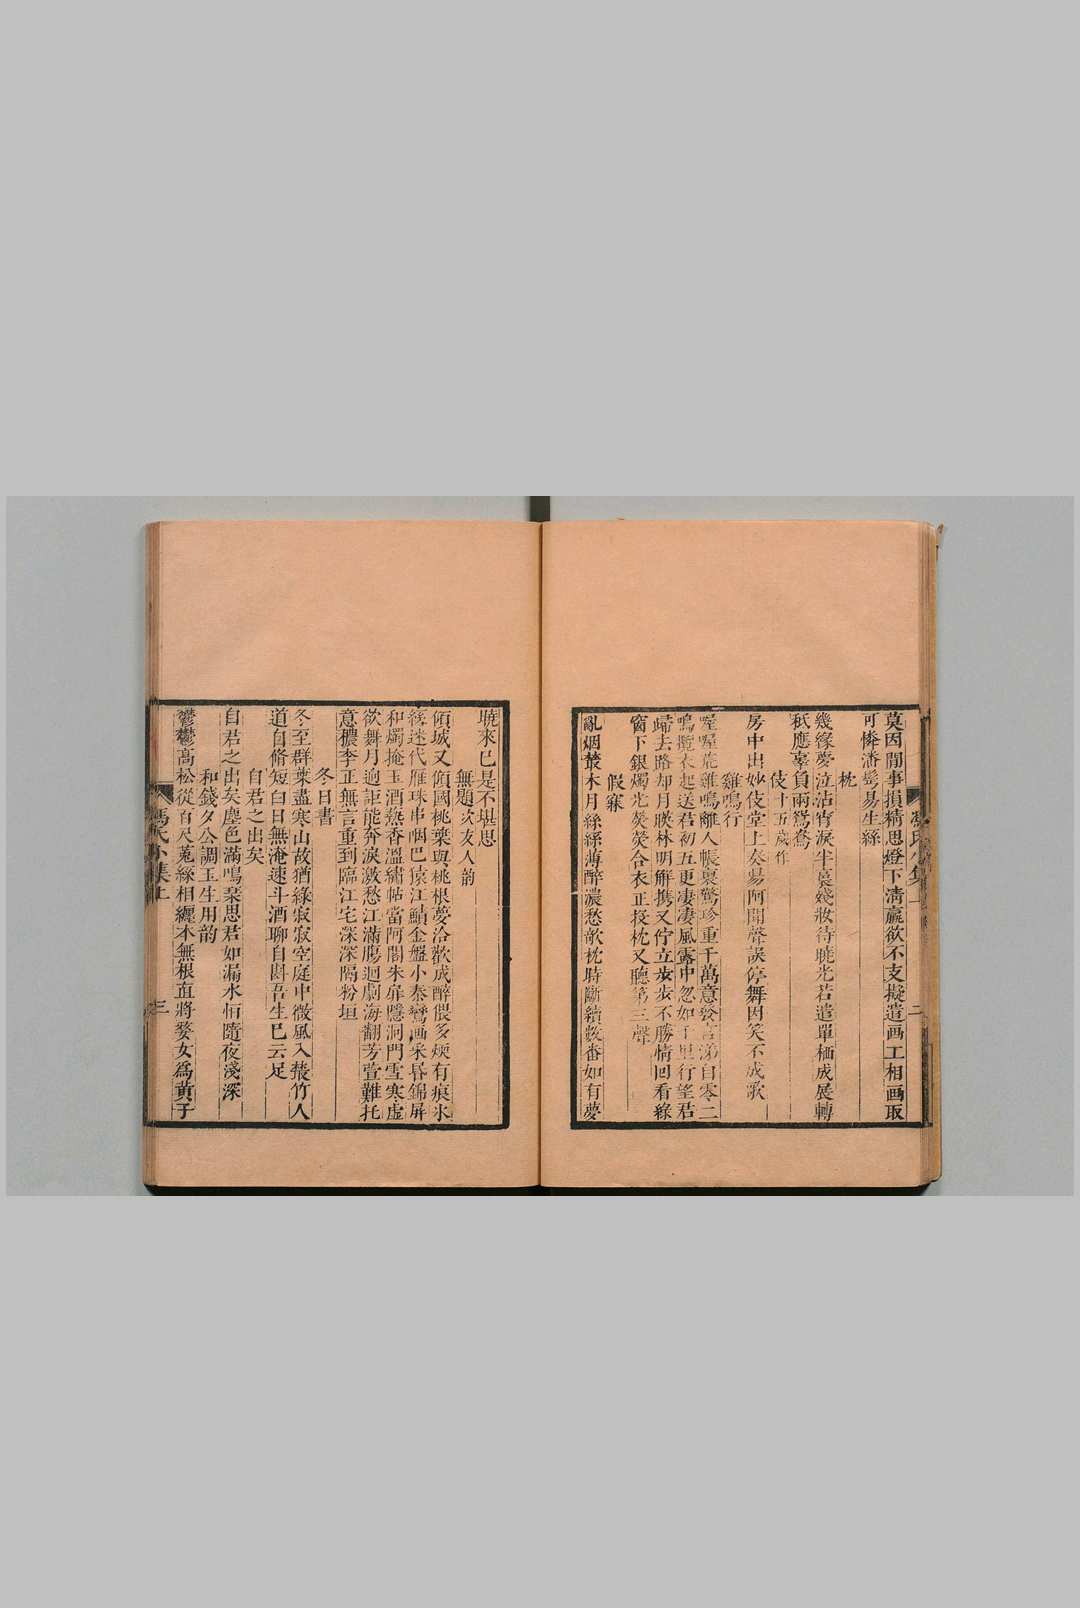 莫因閒事損精思燈下淸羸欲不支擬遣画工相画取
可憐潘鬂易生絲
枕
幾緣夢泣沾宵淚半裛殘妝待曉光若遣單栖成展轉
秪應辜負兩鴛鴦
伎十五歲作
房中出妙伎堂上奏陽阿聞聲誤停舞因笑不成歌
雞鳴行
喔喔荒雞鳴離人帳裏驚珍重千萬意發言涕自零二
鳴攬衣起送君初五更凄凄風露中忽如千里行望君
歸去路却月暎林明解携又佇立步步不勝情囘看綠
窗下銀燭光熒熒合衣正投枕又聽第三聲
假寐
亂烟叢木月絲絲薄醉濃愁欹枕時斷續數番如有夢
曉來已是不堪思
無題次友人韵
傾城又傾國桃葉與桃根夢洽歡成醉偎多煗有痕氷
牋迷代雁珠串咽巴猿江鯖金盤小秦鸞画采昏錦屏
和燭掩玉酒蒸香溫繡帖當阿閣朱扉隱洞門雪寒虛
欲舞月逈詎能奔淚激愁江滿腸迴劇海翻芳萱難托
意穠李正無言重到臨江宅深深隔粉垣
冬日書
冬至群葉盡寒山故猶綠寂寂空庭中微風入叢竹人
道自脩短白日無淹速斗酒聊自斟吾生已云足
自君之出矣
自君之出矣塵色滿鳴琴思君如漏水恒隨夜淺深
和錢夕公調玉生用韵
鬱鬱高松從百尺菟絲相纏本無根直將婺女爲黃子
馮氏小集上
三